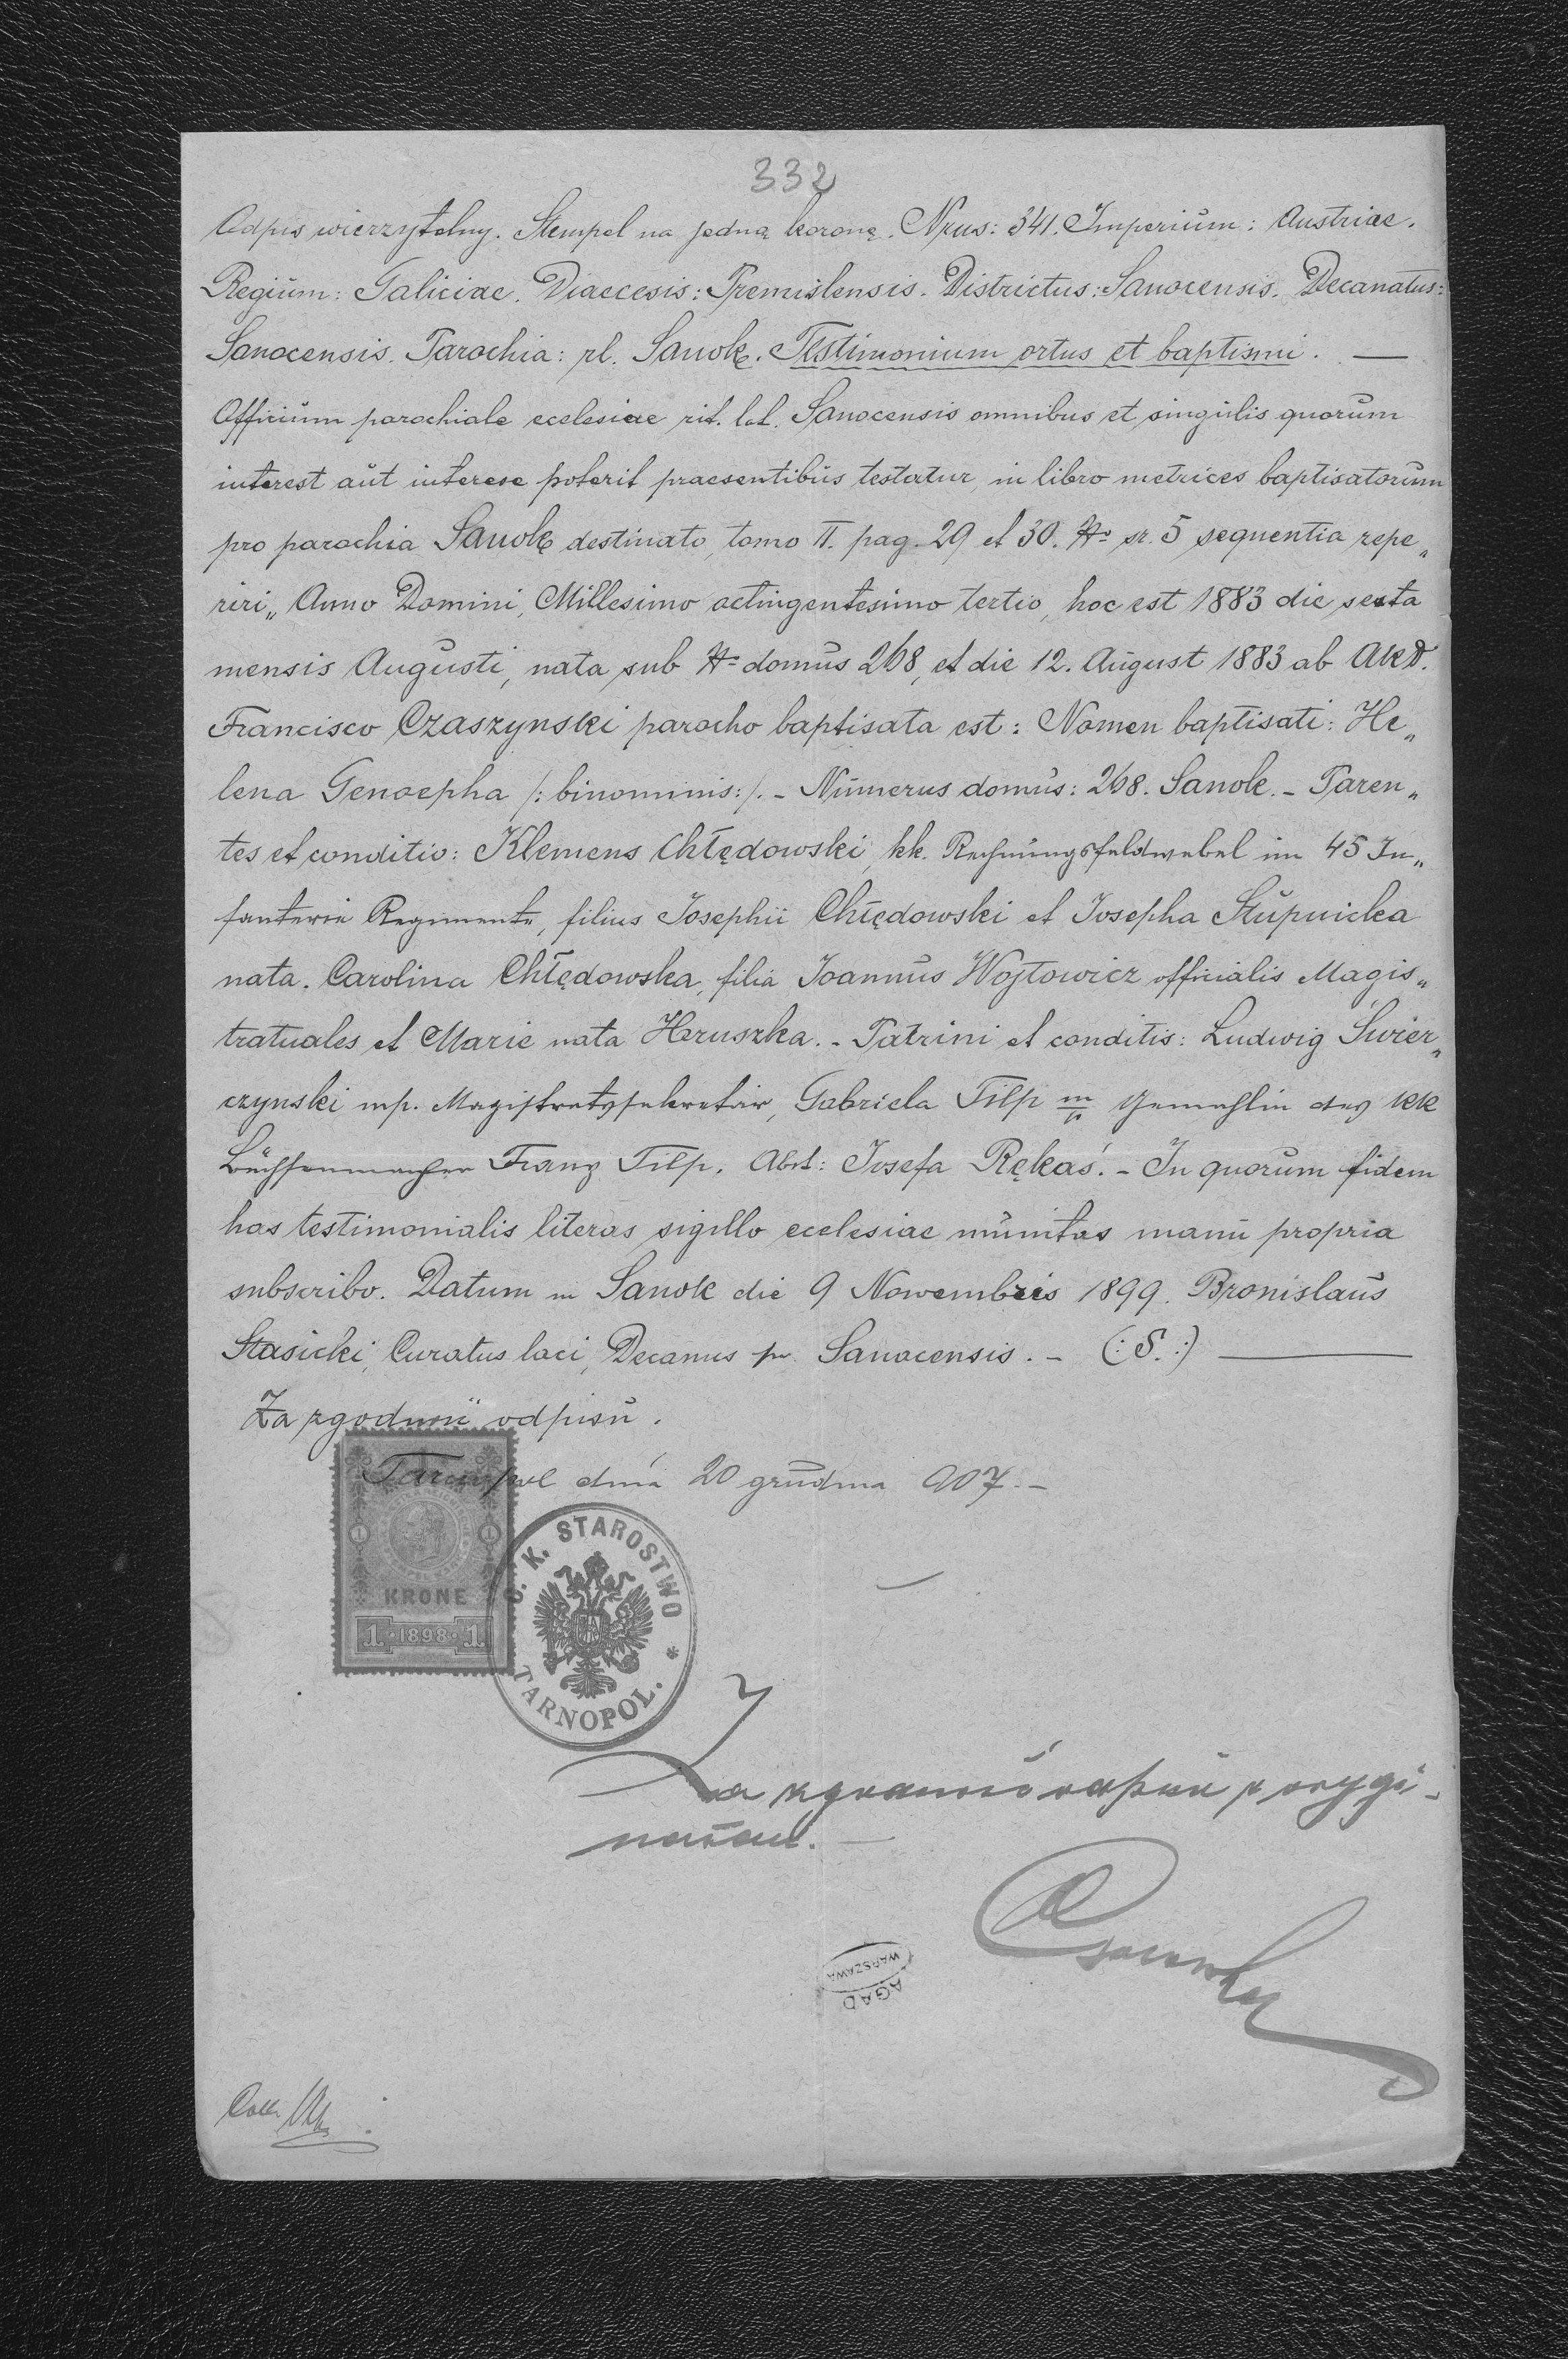 332
Odpis wierzytelny. Stempel na jedną koronę. Nrus: 341. Imperium: Austriae.
Regium: Galiciae. Diaecesis: Premislensis. Districtus: Sanocensis. Decanatus:
Sanocensis. Parochia: rl. Sanok. Testimonium ortus et baptismi. —
Officium parochiale ecclesiae rit. lat. Sanocensis omnibus et singulis quorum
interest aut interese poterit praesentibus testatur, in libro metrices baptisatorum
pro parochia Sanok destinato, tomo II. pag. 29 et 30. No sr. 5 sequentia repe„
riri„ Anno Domini, Millesimo octingentesimo tertio, hoc est 1883 die sexta
mensis Augusti, nata sub No domus 268, et die 12. August 1883 ab ARD.
Francisco Czaszynski parocho baptisata est: Nomen baptisati: He„
lena Genoepha /: binominis :/. - Numerus domus: 268. Sanok. - Paren„
tes et conditio: Klemens Chłędowski, kk. Rechnungsfeldwebel im 45 In„
fanterie Regimente, filius Josephii Chłędowski et Josepha Słupnicka
nata. Carolina Chłędowska, filia Joannus Wojtowicz officialis Magis„
tratuales et Marie nata Heruszka. - Patrini et conditis: Ludwig Świer„
czynski mp. Magistratssekretär, Gabriela Tilp m/p Gemahlin des kk
Büchsenmacher Franz Tilp. Abst: Josefa Rękaś. - In quorum fidem
has testimonialis literas sigillo ecclesiae munitas manu propria
subscribo. Datum in Sanok die 9 Nowembris 1899. Bronislaus
Stasicki, Curatus loci, Decanus pr. Sanocensis. - (:S.:) —
Za zgodność odpisu.
Tarnopol dnia 20 grudnia 907. -
KRONE
1 · 1898 · 1
C. K. STAROSTWO
TARNOPOL.
Za zgodność odpisu z orygi-
nałem. —
AGAD
WARSZAWA